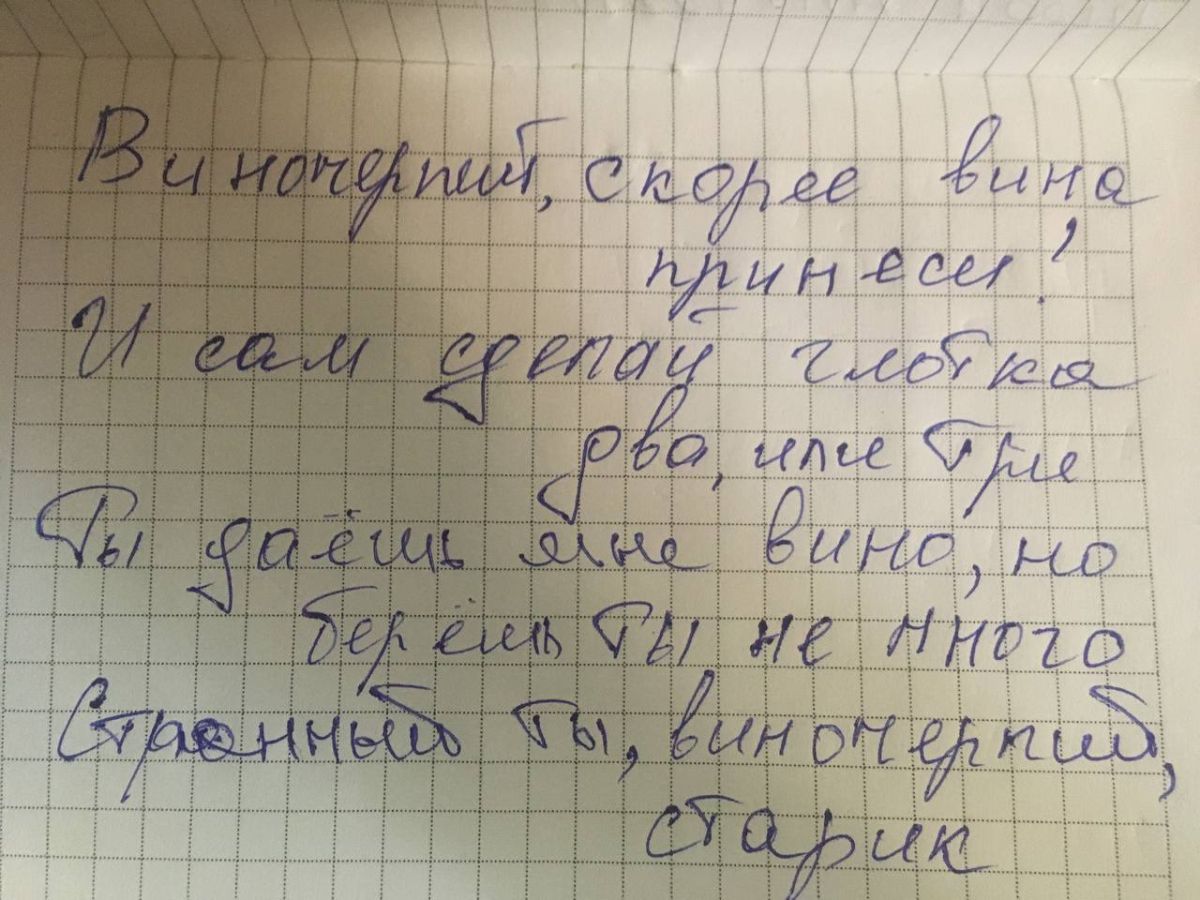 Виночерпий, скорее вина
принеси!
И сам сделай глотка
два, или три
Ты даёшь мне вино, но
берёшь ты не много
Странный ты, виночерпий,
старик